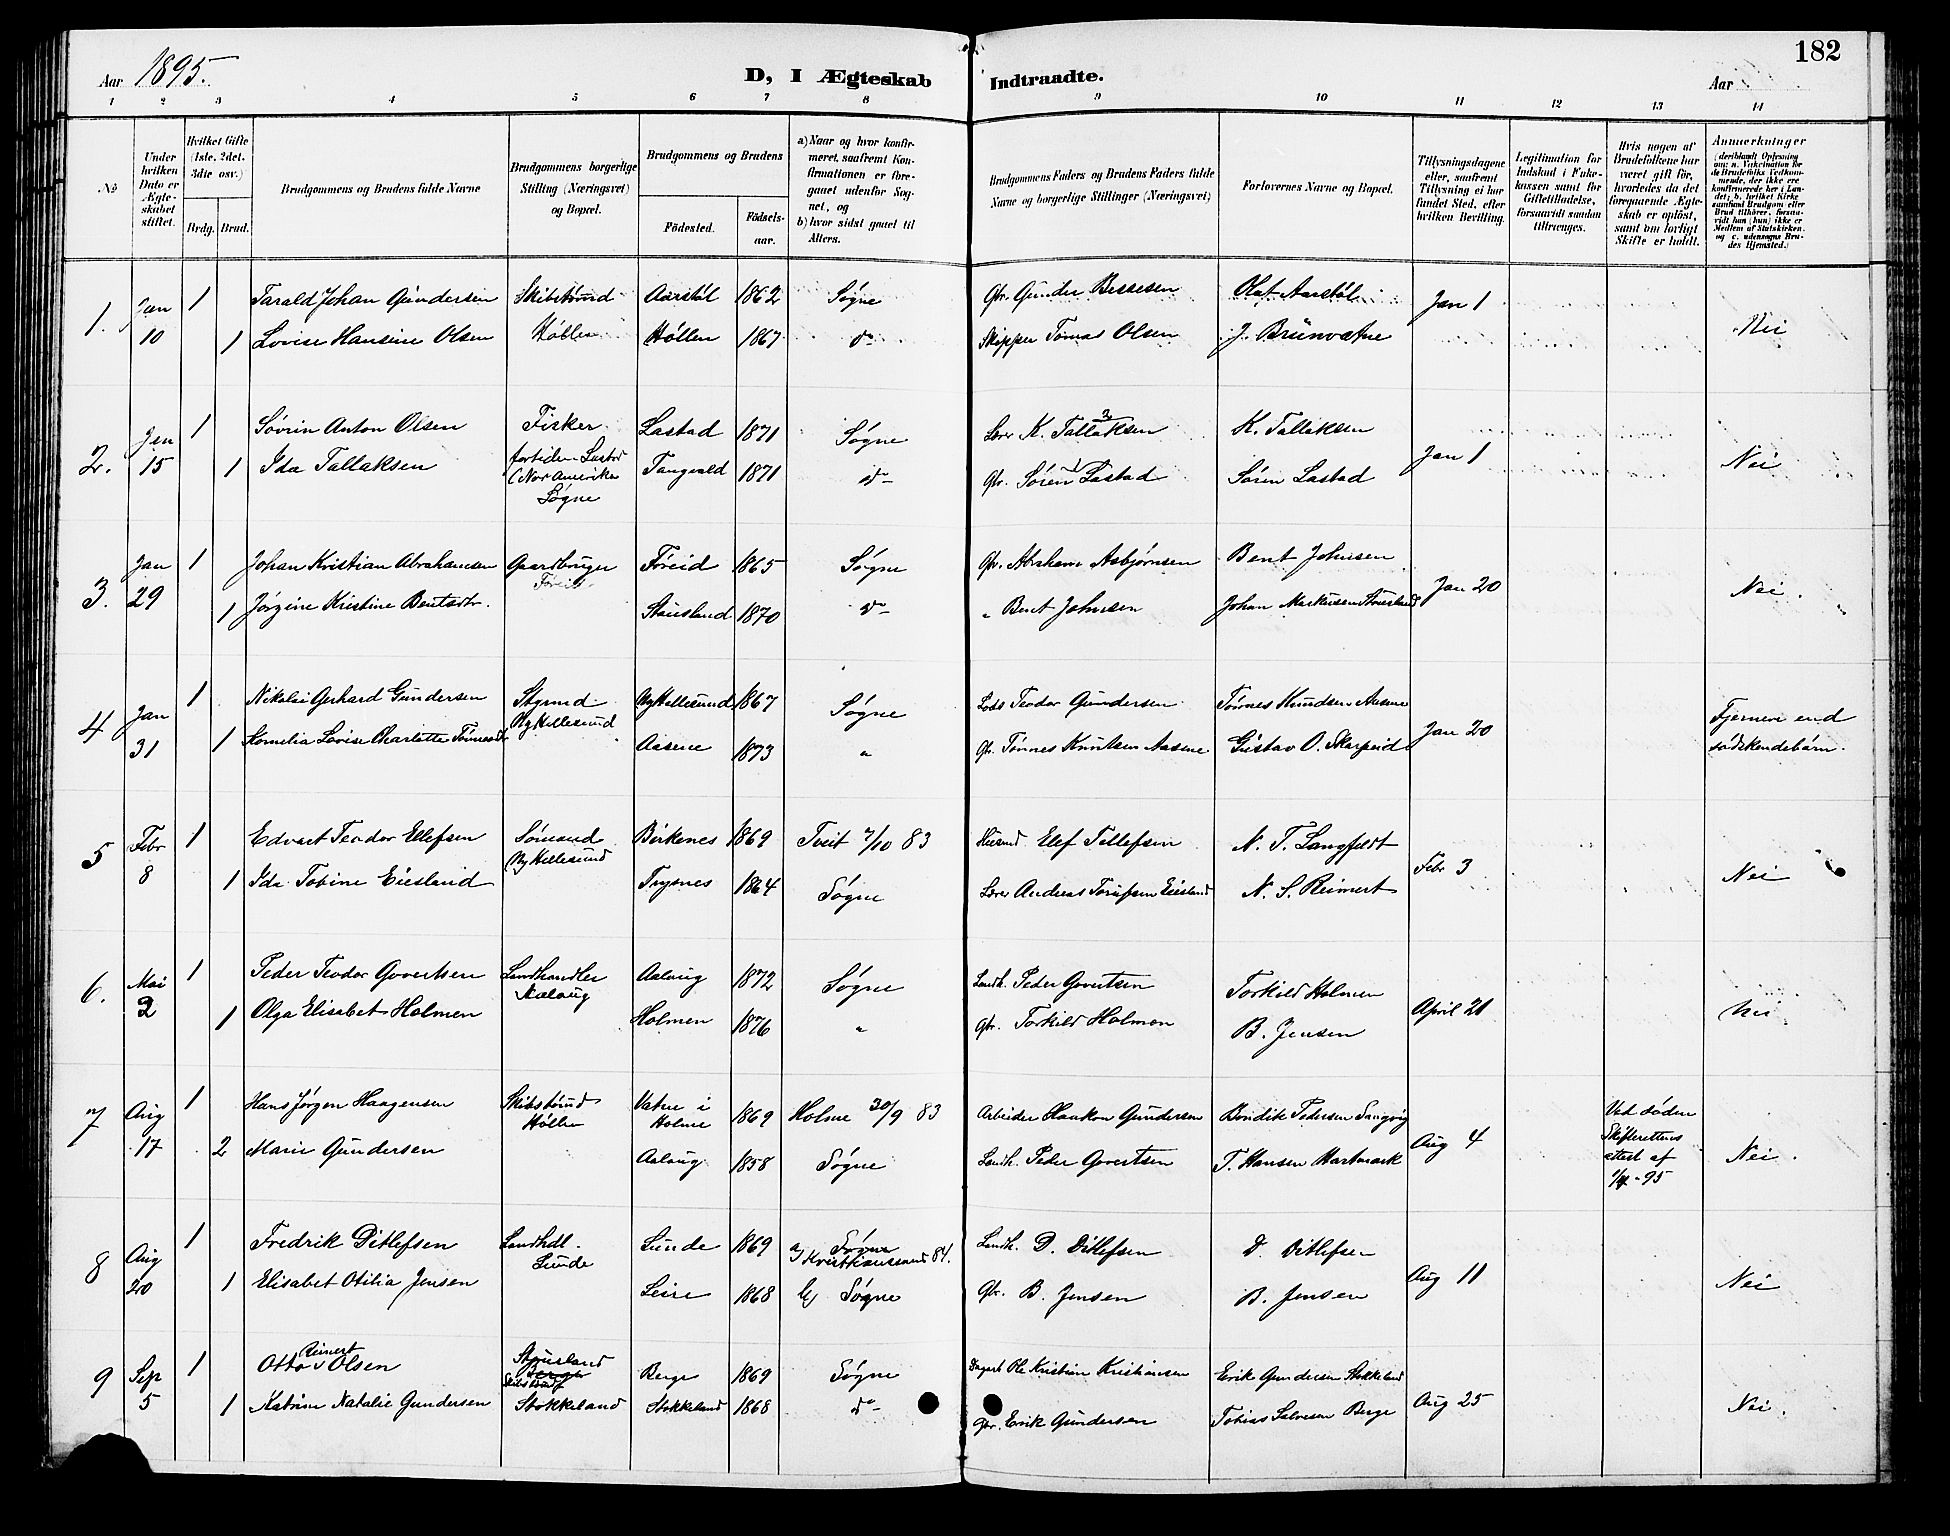 Aar 1895.
D, I Ægteskab Indtraadte.
182
Aar
1 2 3 4 5 6 7 8 9 10 11 12 13 14
No
Under hvilken Dato er Ægteskabet stiftet.
Hvilket Gifte (1ste, 2det, 3die osv.)
Brdg. Brud.
Brudgommens og Brudens fulde Navne
Brudgommens borgerlige Stilling (Næringsvei) og Bopæl.
Brudgommens og Brudens
Fødested. Fødselsaar.
a) Naar og hvor konfirmeret, saafremt Konfirmationen er foregaaet udenfor Sognet, og
b) hvor sidst gaaet til Alters.
Brudgommens Faders og Brudens Faders fulde Navne og borgerlige Stillinger (Næringsvei)
Forlovernes Navne og Bopæl.
Tillysningsdagene eller, saafremt Tillysning ei har fundet Sted, efter hvilken Bevilling.
Legitimation for Indskud i Enkekassen samt for Giftetilladelse, forsaavidt saadan tiltrænges.
Hvis nogen af Brudefolkene har været gift før, hvorledes da det foregaaende Ægteskab er opløst, samt om lovligt Skifte er holdt.
Anmærkninger
1. Jan 10 1 Tarald Johan Gundersen Skibstømd Aarstøl 1862 Søgne Gbr. Gunder Bessesen Olaf Aarstøl Jan 1
1 Lovise Hansine Olsen Høllen Høllen 1867 do Skipper Tomas Olsen J. Brunvatne Nei
2. Jan 15 1 Søvrin Anton Olsen Fisker Lastad 1871 Søgne Lærer K. Tallaksen K. Tallaksen Jan 1
1 Ida Tallaksen fortiden Lastad Tangvald 1871 do Gbr. Søren Lastad Søren Lastad Nei
(Nor Amerika
Søgne
3. Jan 29 1 Johan Kristian Abrahamsen Gaardbruger Føreid 1865 Søgne Gbr. Abraham Asbjørnsen Bent Johnsen Jan 20
1 Jørgine Kristine Bentsdtr. Føreid Stausland 1870 do " Bent Johnsen Johan Markussen Stausland Nei.
4 Jan 31 1 Nikolai Gerhard Gundersen Styrmd Ny Hellesund 1867 Søgne Lods Teodor Gundersen Tønnes Knudsen Aasene Jan 20 Fjernere end
1 Kornelia Lovise Charlotte Tønnesdtr Ny Hellesund Aasene 1873 " Gbr. Tønnes Knutsen Aasene Gustav O. Skarpeid sødskendebørn.
5 Febr 8 1 Edvart Teodor Ellefsen Sømand Birkenes 1869 Tveit 7/10 83 Husmd Elef Tellefsen N. T. Langfeldt Febr 3
1 Ida Tobine Eiesland Ny Hellesund Trysnes 1864 Søgne Lærer Andreas Torufsen Eiesland N. S. Reimert Nei
6. Mai 2 1 Peder Teodor Govertsen Landhandler Aalaug 1872 Søgne Landh. Peder Govertsen Torkild Holmen April 21
1 Olga Elisabet Holmen Aalaug Holmen 1876 " Gbr. Torkild Holmen B. Jensen Nei
7 Aug 17 1 Hans Jørgen Haagensen Skibstømd Vatne i Holme 1869 Holme 30/9 83 Arbeider Haakon Gundersen Bendik Pedersen Langvig Aug 4 Ved døden
2 Marie Gundersen Høllen Aalaug 1858 Søgne Landh. Peder Govertsen T. Hansen Hartmark Skifterettens attest af 1/4-95 Nei.
8 Aug 20 1 Fredrik Ditlefsen Landhdl. Lunde 1869 a) Søgne Kristianssand 84. Landh. D. Ditlefsen D. Ditlefsen Aug 11
1 Elisabet Otilia Jensen Lunde Leire 1868 b) Søgne Gbr. B. Jensen B. Jensen Nei
9 Sep 5 1 Otto Reinert Olsen Stausland Skibstømd Berge 1869 Søgne Dagarb. Ole Kristian Kristiansen Erik Gundersen Stokkeland Aug 25
1 Katrine Natalie Gundersen Stokkeland Stokkeland 1868 do Gbr. Erik Gundersen Tobias Salvesen Berge Nei.